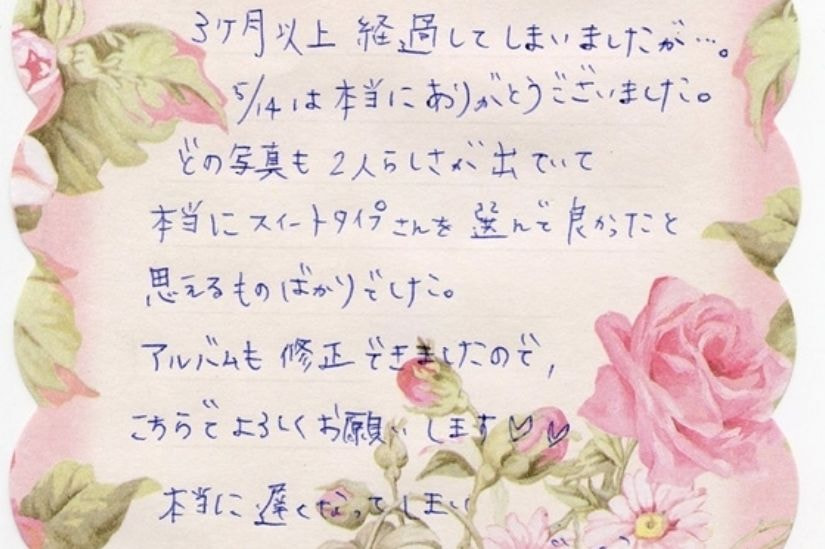 3ケ月以上 経過してしまいましたが…。
5/14は本当にありがとうございました。
どの写真も 2人らしさが 出でいて
本当に スイートタイプさんを 選んで 良かったと
思えるものばかりでした。
アルバムも 修正できましたので、
こちらで よろしくお願いします♡♡
本当に 遅くなってしまい